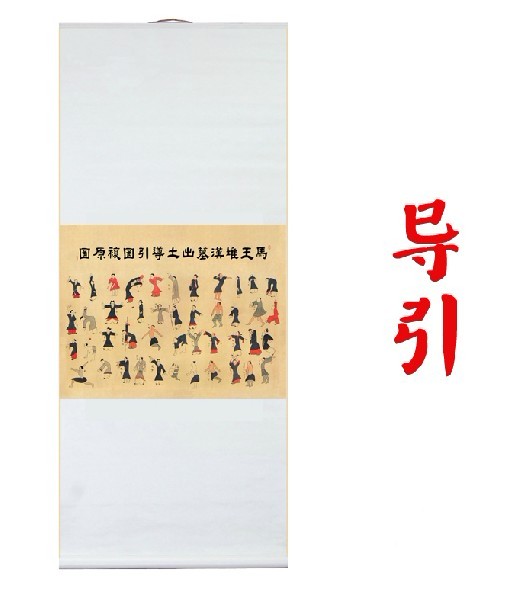 馬王堆漢墓出土導引圖復原圖
导引